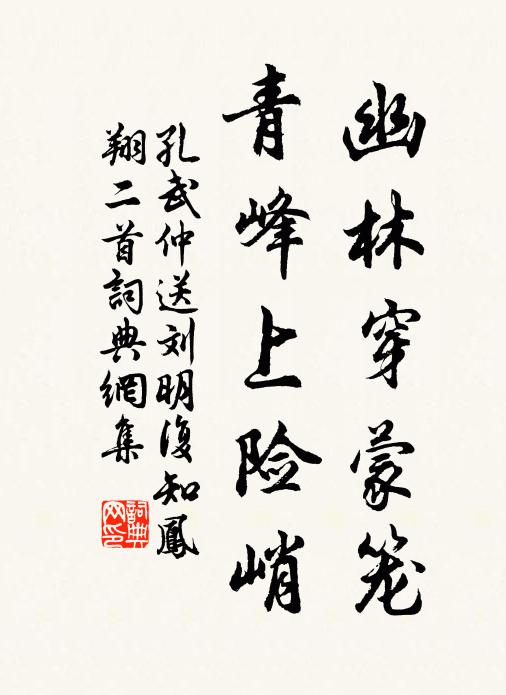 幽林穿蒙笼
青峰上险峭
孔武仲送刘明復知鳳
翔二首詞典網集
詞典网印